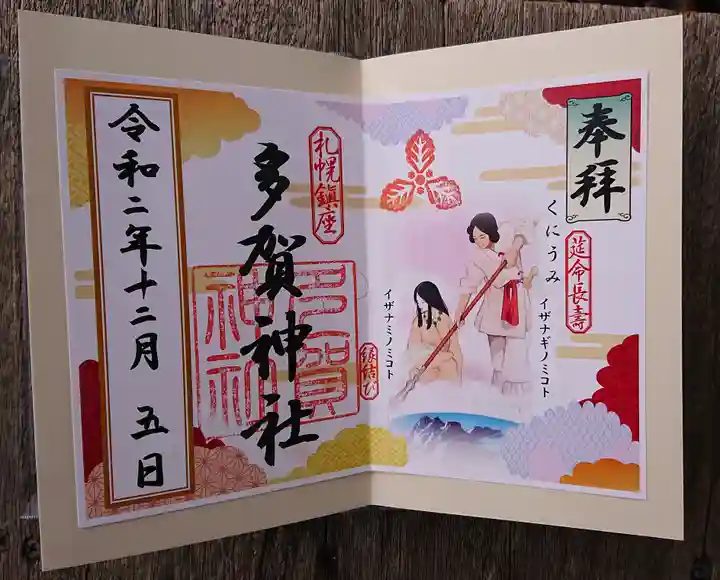 奉拝
延命長壽
くにうみ
イザナギノミコト
イザナミノミコト
縁結び
札幌鎮座
多賀神社
多賀神社
令和二年十二月 五日